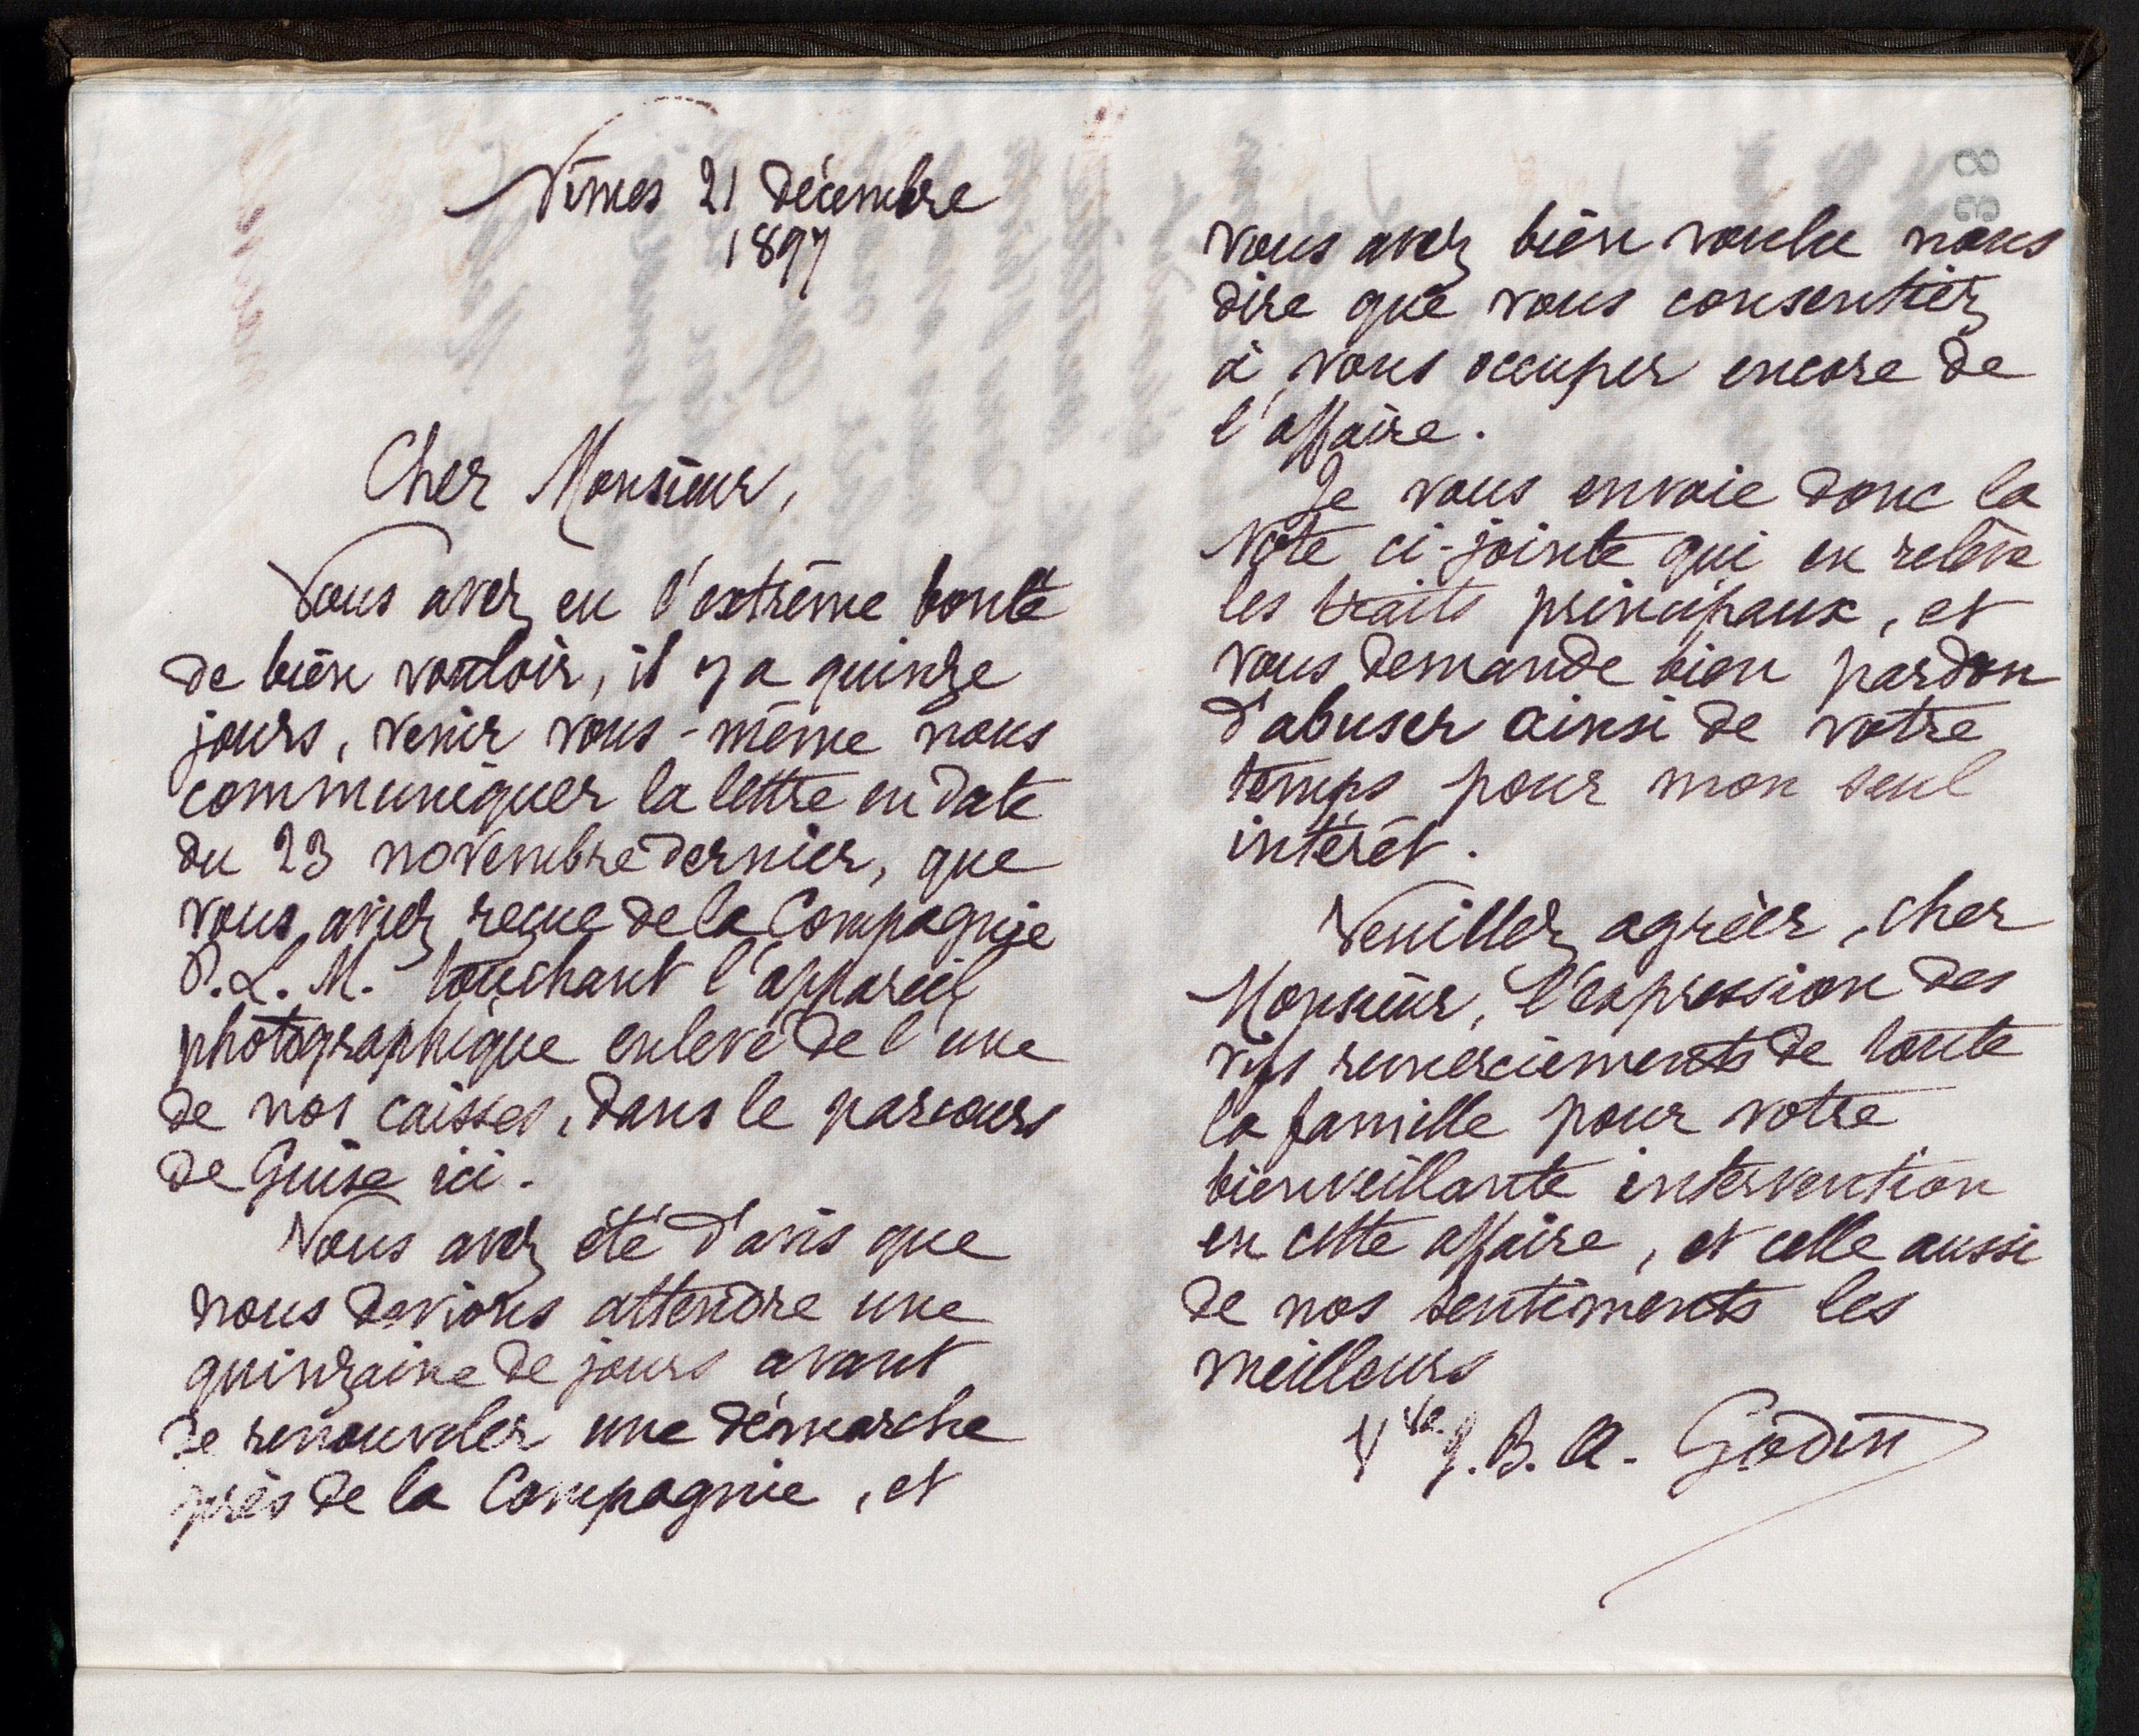 Nîmes 21 décembre
1897
Cher Monsieur,
Vous avez eu l'extrême bonté
de bien vouloir, il y a quinze
jours, venir vous-même nous
communiquer la lettre en date
du 23 novembre dernier, que
vous aviez reçue de la Compagnie
P.L.M. touchant l'appareil
photographique enlevé de l'une
de nos caisses, dans le parcours
de Guise ici.
Vous avez été d'avis que
nous devions attendre une
quinzaine de jours avant
de renouveler une démarche
près de la Compagnie, et
vous avez bien voulu nous
dire que vous consentiez
à vous occuper encore de
l'affaire.
Je vous envoie donc la
Note ci-jointe qui en relève
les traits principaux, et
vous demande bien pardon
d'abuser ainsi de votre
temps pour mon seul
intérêt.
Veuillez agréer, cher
Monsieur, l'expression des
vifs remerciements de toute
la famille pour votre
bienveillante intervention
en cette affaire, et celle aussi
de nos sentiments les
meilleurs
Vve J.B.A. Godin